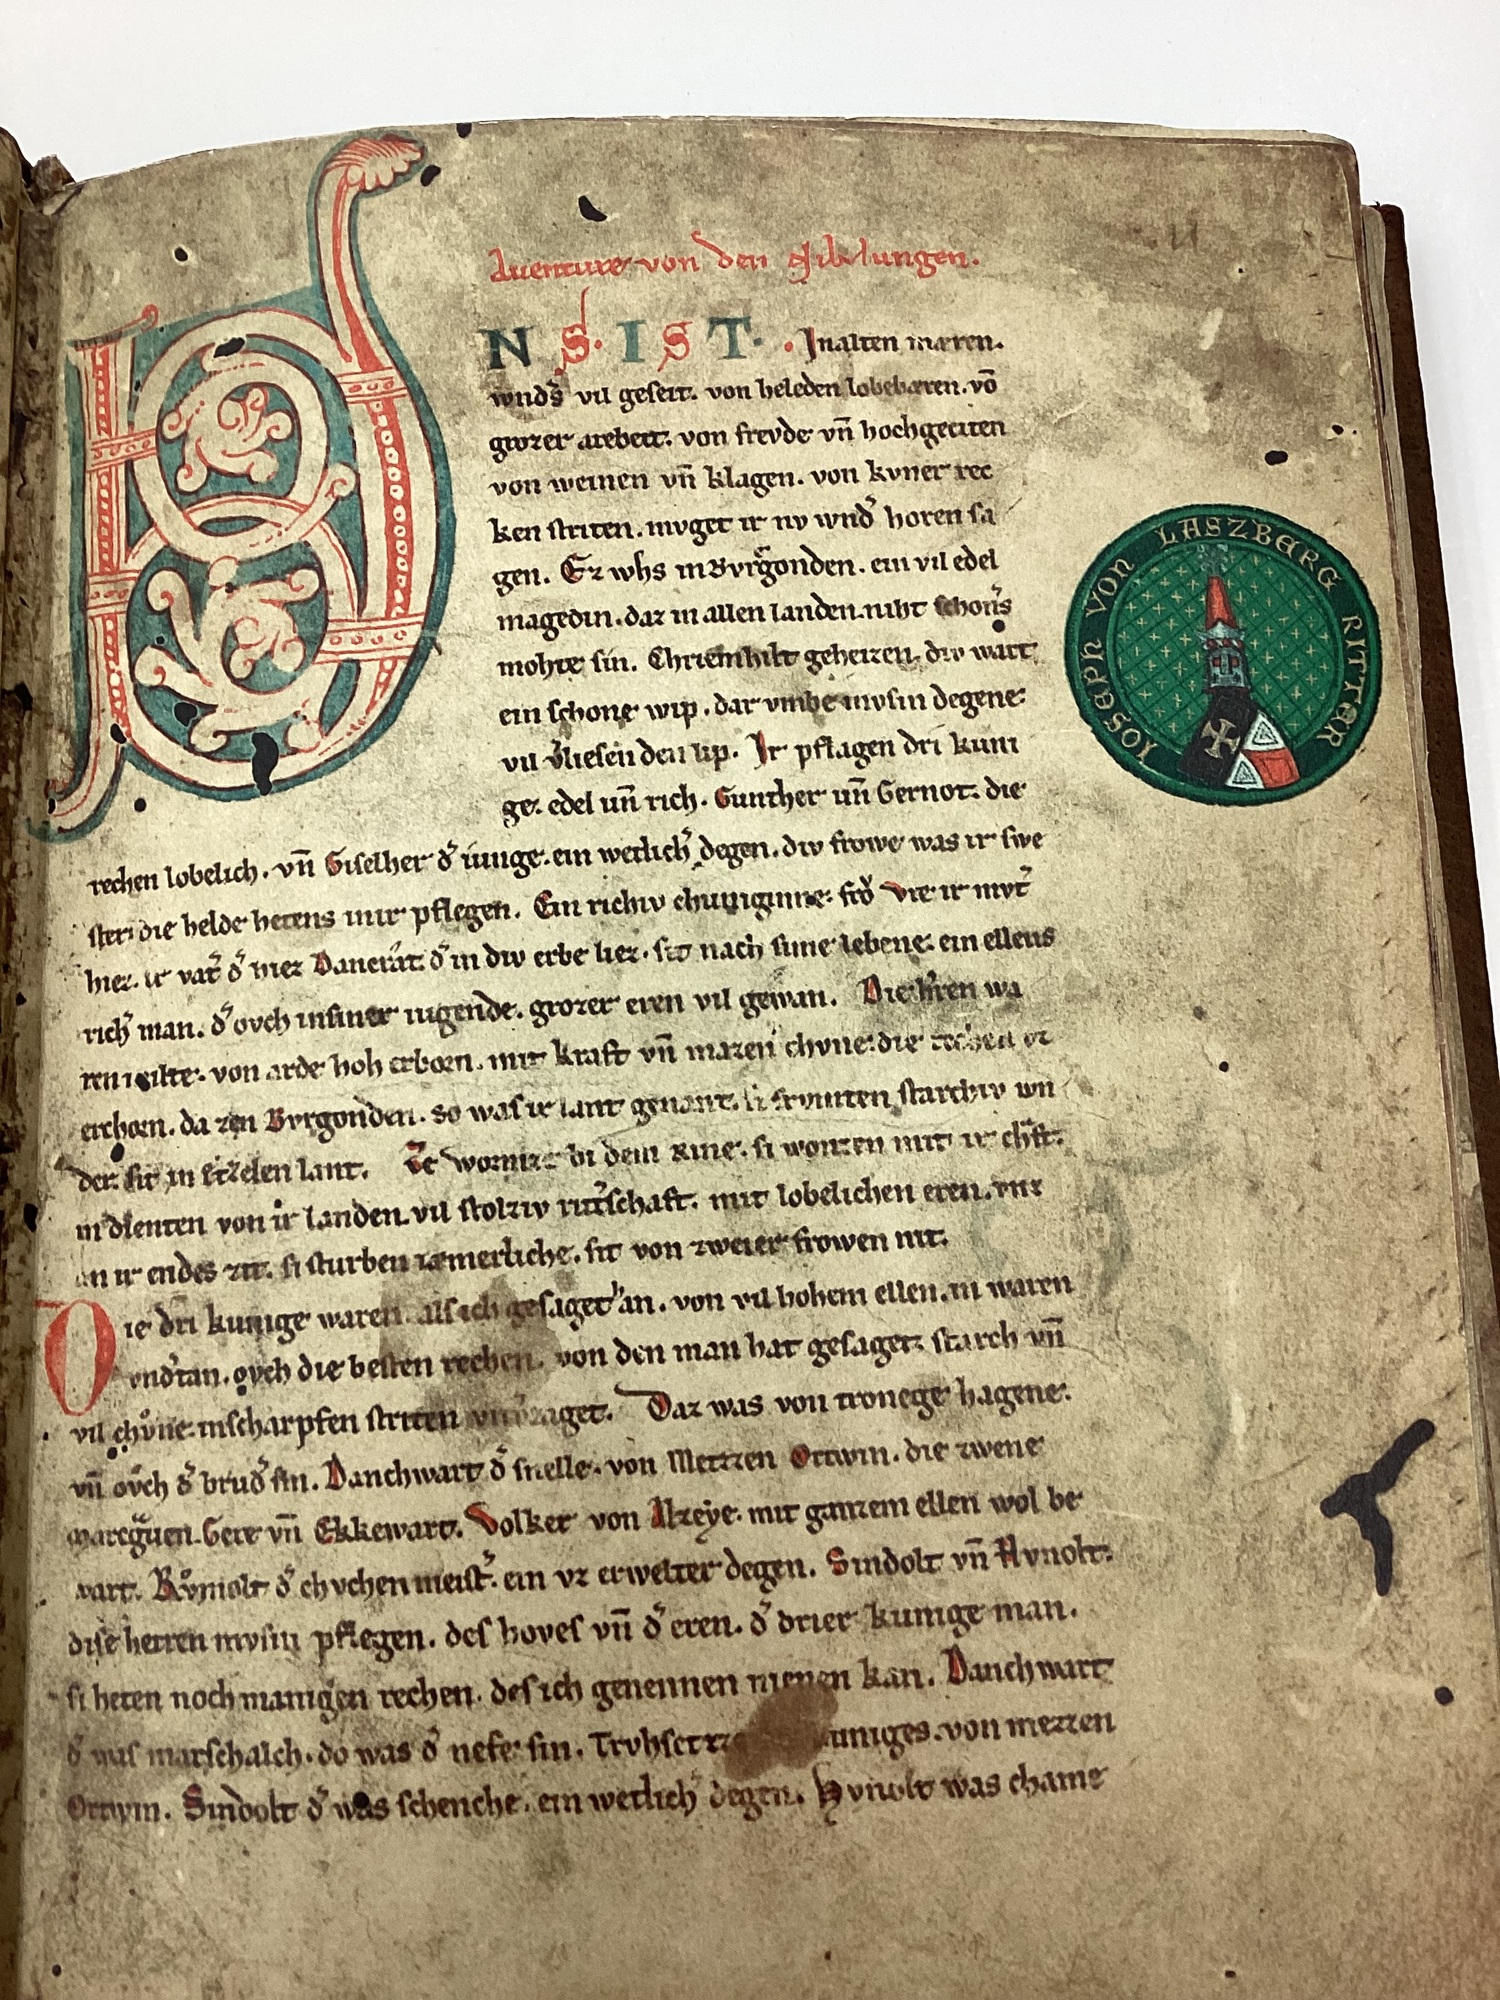 Auenture von den Nibelungen.
UNS. IST. Inalten mæren.
wnds̉ vil geseit. von heleden lobebæren. vō
grozer arebeit. von frevde vn̄ hochgeciten
von weinen vn̄ klagen. von kvner rec
ken striten. mvget ir nv wnd̉ horen sa
gen. Ez whs inBvrgonden. ein vil edel
magedin. daz in allen landen. niht schoñs
mohte sin. Chriemhilt geheizen. div wart
ein schone wip. dar vmbe mvsin degene
vil v̉liesen den lip. Ir pflagen dri kuni
ge. edel un̄ rich. Gunther un̄ Gernot. die
rechen lobelich. vn̄ Giselher d̉ iunge. ein wetlich̉ degen. div frowe was ir swe
ster. die helde hetens inir pflegen. Ein richiv chuniginne. frŏ Vte ir mvt̉
hiez. ir vat̉ d̉ hiez Dancrat. d̉ in div erbe liez. sit nach sime lebene. ein ellens
rich̉ man. d̉ ovch insiner iugende. grozer eren vil gewan. Die h̉ren wa
ren milte. von arde hoh erborn. mit kraft vn̄ mazen chvne. die rechen vz
erchorn. da zen Bvrgonden. so was ir lant genant. si frvmten starchiv wn
der. sit in Etzelen lant. Ze Wormze bi dem Rine. si wonten mit ir chr̉ft.
in dienten von ir landen. vil stolziv rit̉schaft. mit lobelichen eren. vnz
an ir endes zit. si sturben iæmerliche. sit von zweier frowen nit.
Die dri kunige waren. als ich gesaget han. von vil hohem ellen. in waren
vnd̉tan. ovch die besten rechen. von den man hat gesaget. starch vn̄
vil chv̊ne. inscharpfen striten vnv̉zaget. Daz was von tronege hagene.
vn̄ ovch d̉ brud̉ sin. Danchwart d̉ snelle. von Metzen Ortwin. die zwene
marcgͮuen. Gere vn̄ Ekkewart. Volker von Alzeye. mit ganzem ellen wol be
wart. Rv̊molt d̉ chvchen meist̉. ein vz erwelter degen. Sindolt vn̄ Hvnolt.
dise herren mvsin pflegen. des hoves vn̄ d̉ eren. d̉ drier kunige man.
si heten noch manigen rechen. des ich genennen nienen kan. Danchwart
d̉ was marschalch. do was d̉ nefe sin. Trvhsetze kuniges. von metzen
Ortwin. Sindolt d̉ was schenche. ein wetlich̉ degen. Hvnolt was chame
IOSEPH VON LASZBERG RITTER